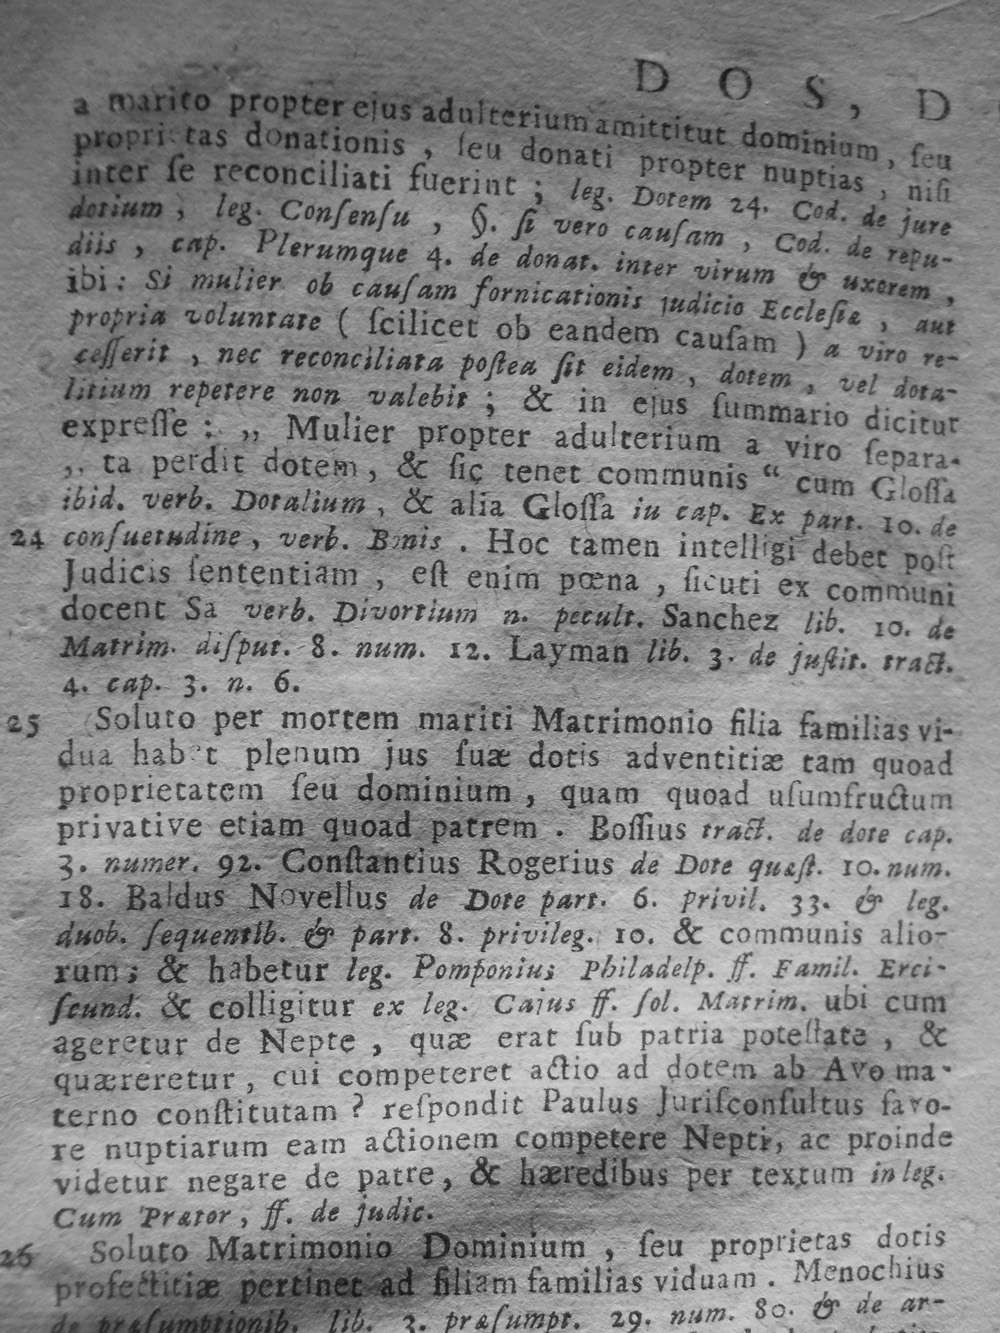 D O S, D
a marito propter ejus adulterium amittitut dominium, ſeu
proprietas donationis, ſeu donati propter nuptias, niſi
inter ſe reconciliati fuerint; leg. Dotem 24. Cod. de jure
dotium, leg. Conſenſu, §. ſi vero cauſam, Cod. de repu-
diis, cap. Plerumque 4. de donat. inter virum & uxorem,
ibi: Si mulier ob cauſam fornicationis judicio Eccleſiæ, aut
propria voluntate (ſcilicet ob eandem cauſam) a viro re-
ceſſerit, nec reconciliata poſtea ſit eidem, dotem, vel dota-
litium repetere non valebit; & in ejus ſummario dicitut
expreſſe: ,, Mulier propter adulterium a viro ſepara-
,, ta perdit dotem, & ſic tenet communis “ cum Gloſſa
ibid. verb. Dotalium, & alia Gloſſa iu cap. Ex part. 10. de
24 conſuetudine, verb. Bonis. Hoc tamen intelligi debet poſt
Judicis ſententiam, eſt enim pœna, ſicuti ex communi
docent Sa verb. Divortium n. pecult. Sanchez lib. 10. de
Matrim. diſput. 8. num. 12. Layman lib. 3. de juſtit. tract.
4. cap. 3. n. 6.
25 Soluto per mortem mariti Matrimonio filia familias vi-
dua habet plenum jus ſuæ dotis adventitiæ tam quoad
proprietatem ſeu dominium, quam quoad uſumfructum
privative etiam quoad patrem. Boſſius tract. de dote cap.
3. numer. 92. Conſtantius Rogerius de Dote quæſt. 10. num.
18. Baldus Novellus de Dote part. 6. privil. 33. & leg.
duob. ſequentib. & part. 8. privileg. 10. & communis alio-
rum; & habetur leg. Pomponius Philadelp. ff. Famil. Erci-
ſcund. & colligitur ex leg. Cajus ff. ſol. Matrim. ubi cum
ageretur de Nepte, quæ erat ſub patria poteſtate, &
quæreretur, cui competeret actio ad dotem ab Avo ma-
terno conſtitutam? reſpondit Paulus Juriſconſultus favo-
re nuptiarum eam actionem competere Nepti, ac proinde
videtur negare de patre, & hæredibus per textum in leg.
Cum Prætor, ff. de judic.
26 Soluto Matrimonio Dominium, ſeu proprietas dotis
profectitiæ pertinet ad filiam familias viduam. Menochius
de præſumptionib. lib. 3. præſumpt. 29. num. 80. & de ar-